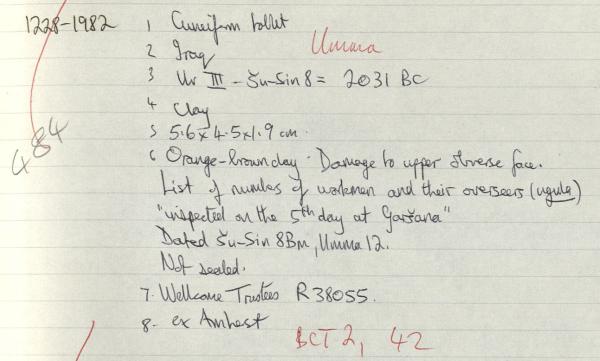 1228-1982 1 Cuneiform tablet
Umma
2 Iraq
3 Ur III - Šu-Sin 8 = 2031 BC
4 Clay
484
5 5.6 x 4.5 x 1.9 cm.
6 Orange-brown clay. Damage to upper obverse face.
List of numbers of workmen and their overseers (ugula)
"inspected on the 5th day at Garšana"
Dated Šu-Sin 8 Bm, Umma 12.
Not sealed.
7. Wellcome Trustees R38055.
8. ex Amherst
BCT 2, 42